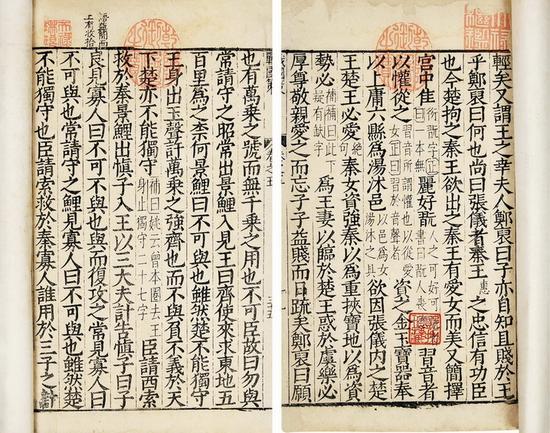 輕矣又謂王之幸夫人鄭褎曰子亦自知且賤於王
乎鄭褎曰何也尚曰張儀者秦王惠之忠信有功臣
也今楚拘之秦王欲出之秦王有愛女而美又簡擇
宮中佳麗好翫習音者
以懽從之資之金玉寶器奉
以上庸六縣爲湯沐邑欲因張儀內之楚
王楚王必愛秦女資強秦以爲重挾寶地以爲資
勢必補曰此下疑有缺字爲王妻以臨於楚王惑於虞樂必
厚尊敬親愛之而忘子子益賤而日疏矣鄭褎曰願
也有萬乘之號而無千乘之用也不可臣故曰勿與
常請守之昭常出景鯉入見王曰齊使來求東地五
百里爲之柰何景鯉曰不可與也雖然楚不能獨守
王身出玉聲許萬乘之強齊也而不與負不義於天
下楚亦不能獨守補曰姚云曾本圈去王身止獨守二十七字臣請西索
救於秦景鯉出慎子入王以三大夫計告慎子曰子
良見寡人曰不可不與也與而復攻之常見寡人曰
不可與也常請守之鯉見寡人曰不可與也雖然楚
不能獨守也臣請索救於秦寡人誰用於三子之計